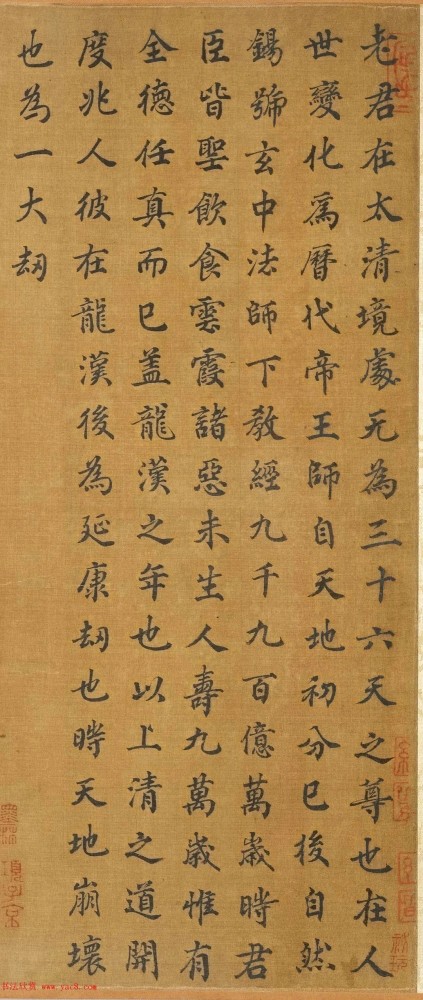 老君在太清境處无為三十六天之尊也在人
世變化為曆代帝王師自天地初分已後自然
錫號玄中法師下教經九千九百億萬歲時君
臣皆聖飲食雲霞諸惡未生人壽九萬歲惟有
全德任真而已盖龍漢之年也以上清之道開
度兆人彼在龍漢後為延康劫也時天地崩壞
也為一大劫
书法欣赏 www.yac8.com